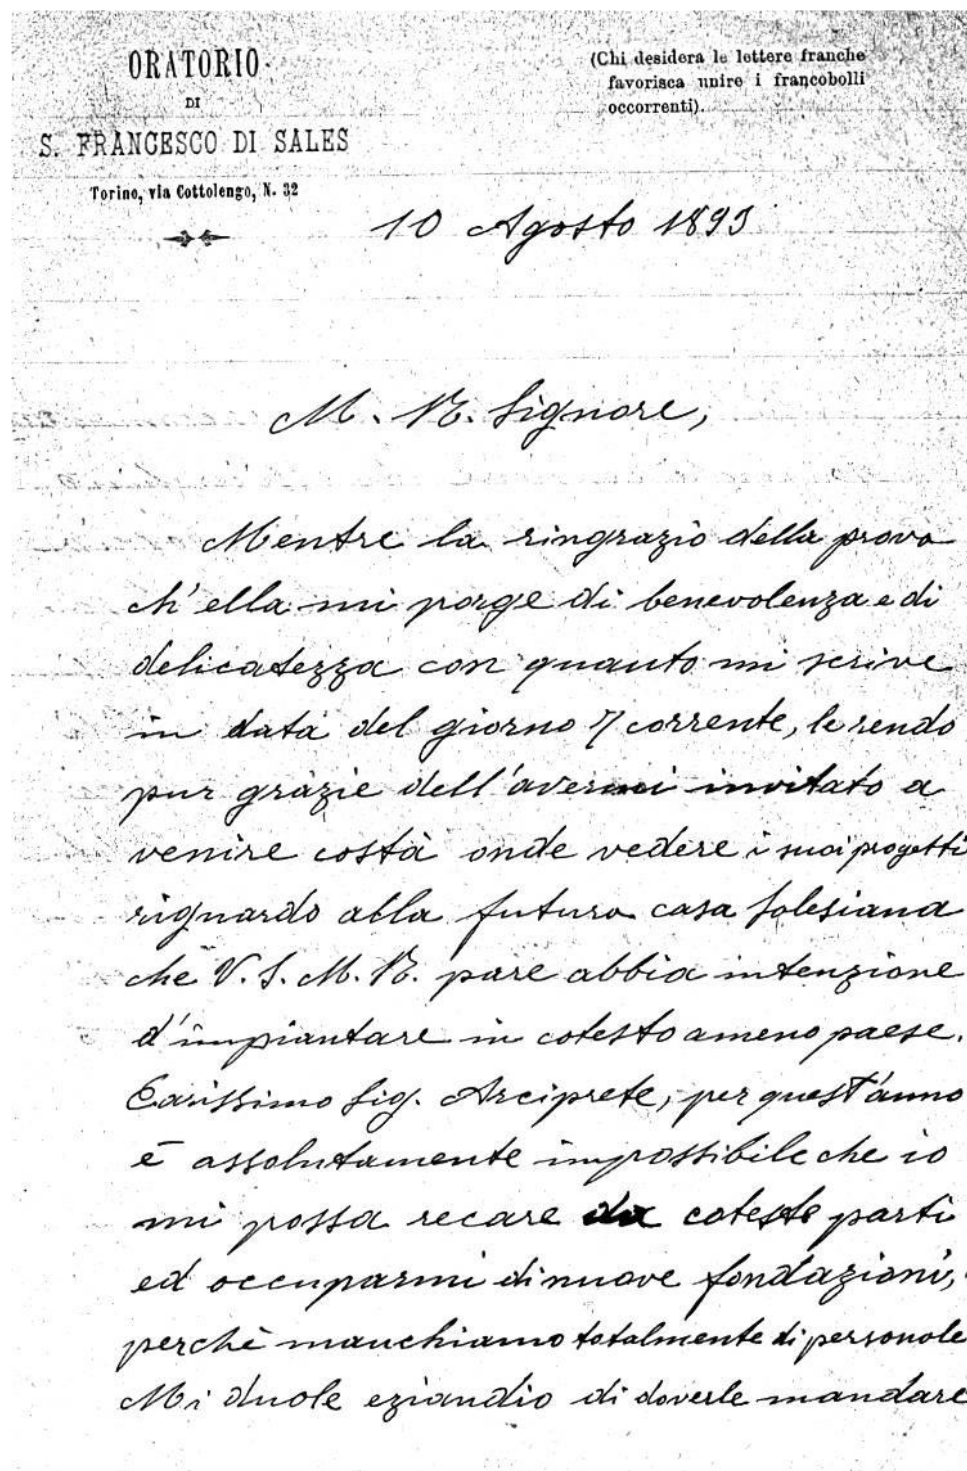 ORATORIO
DI
S. FRANCESCO DI SALES
Torino, via Cottolengo, N. 32
(Chi desidera le lettere franche
favorisca unire i francobolli
occorrenti).
10 Agosto 1893
M. R. Signore,
Mentre la ringrazio della prova
ch'ella mi porge di benevolenza e di
delicatezza con quanto mi scrive
in data del giorno 7 corrente, le rendo
pur grazie dell'avermi invitato a
venire costà onde vedere i suoi progetti
riguardo alla futura casa Salesiana
che V. S. M. R. pare abbia intenzione
d'impiantare in cotesto ameno paese.
Carissimo Sig. Arciprete, per quest'anno
è assolutamente impossibile che io
mi possa recare da coteste parti
ed occuparmi di nuove fondazioni,
perchè manchiamo totalmente di personale
Mi duole eziandio di doverle mandare